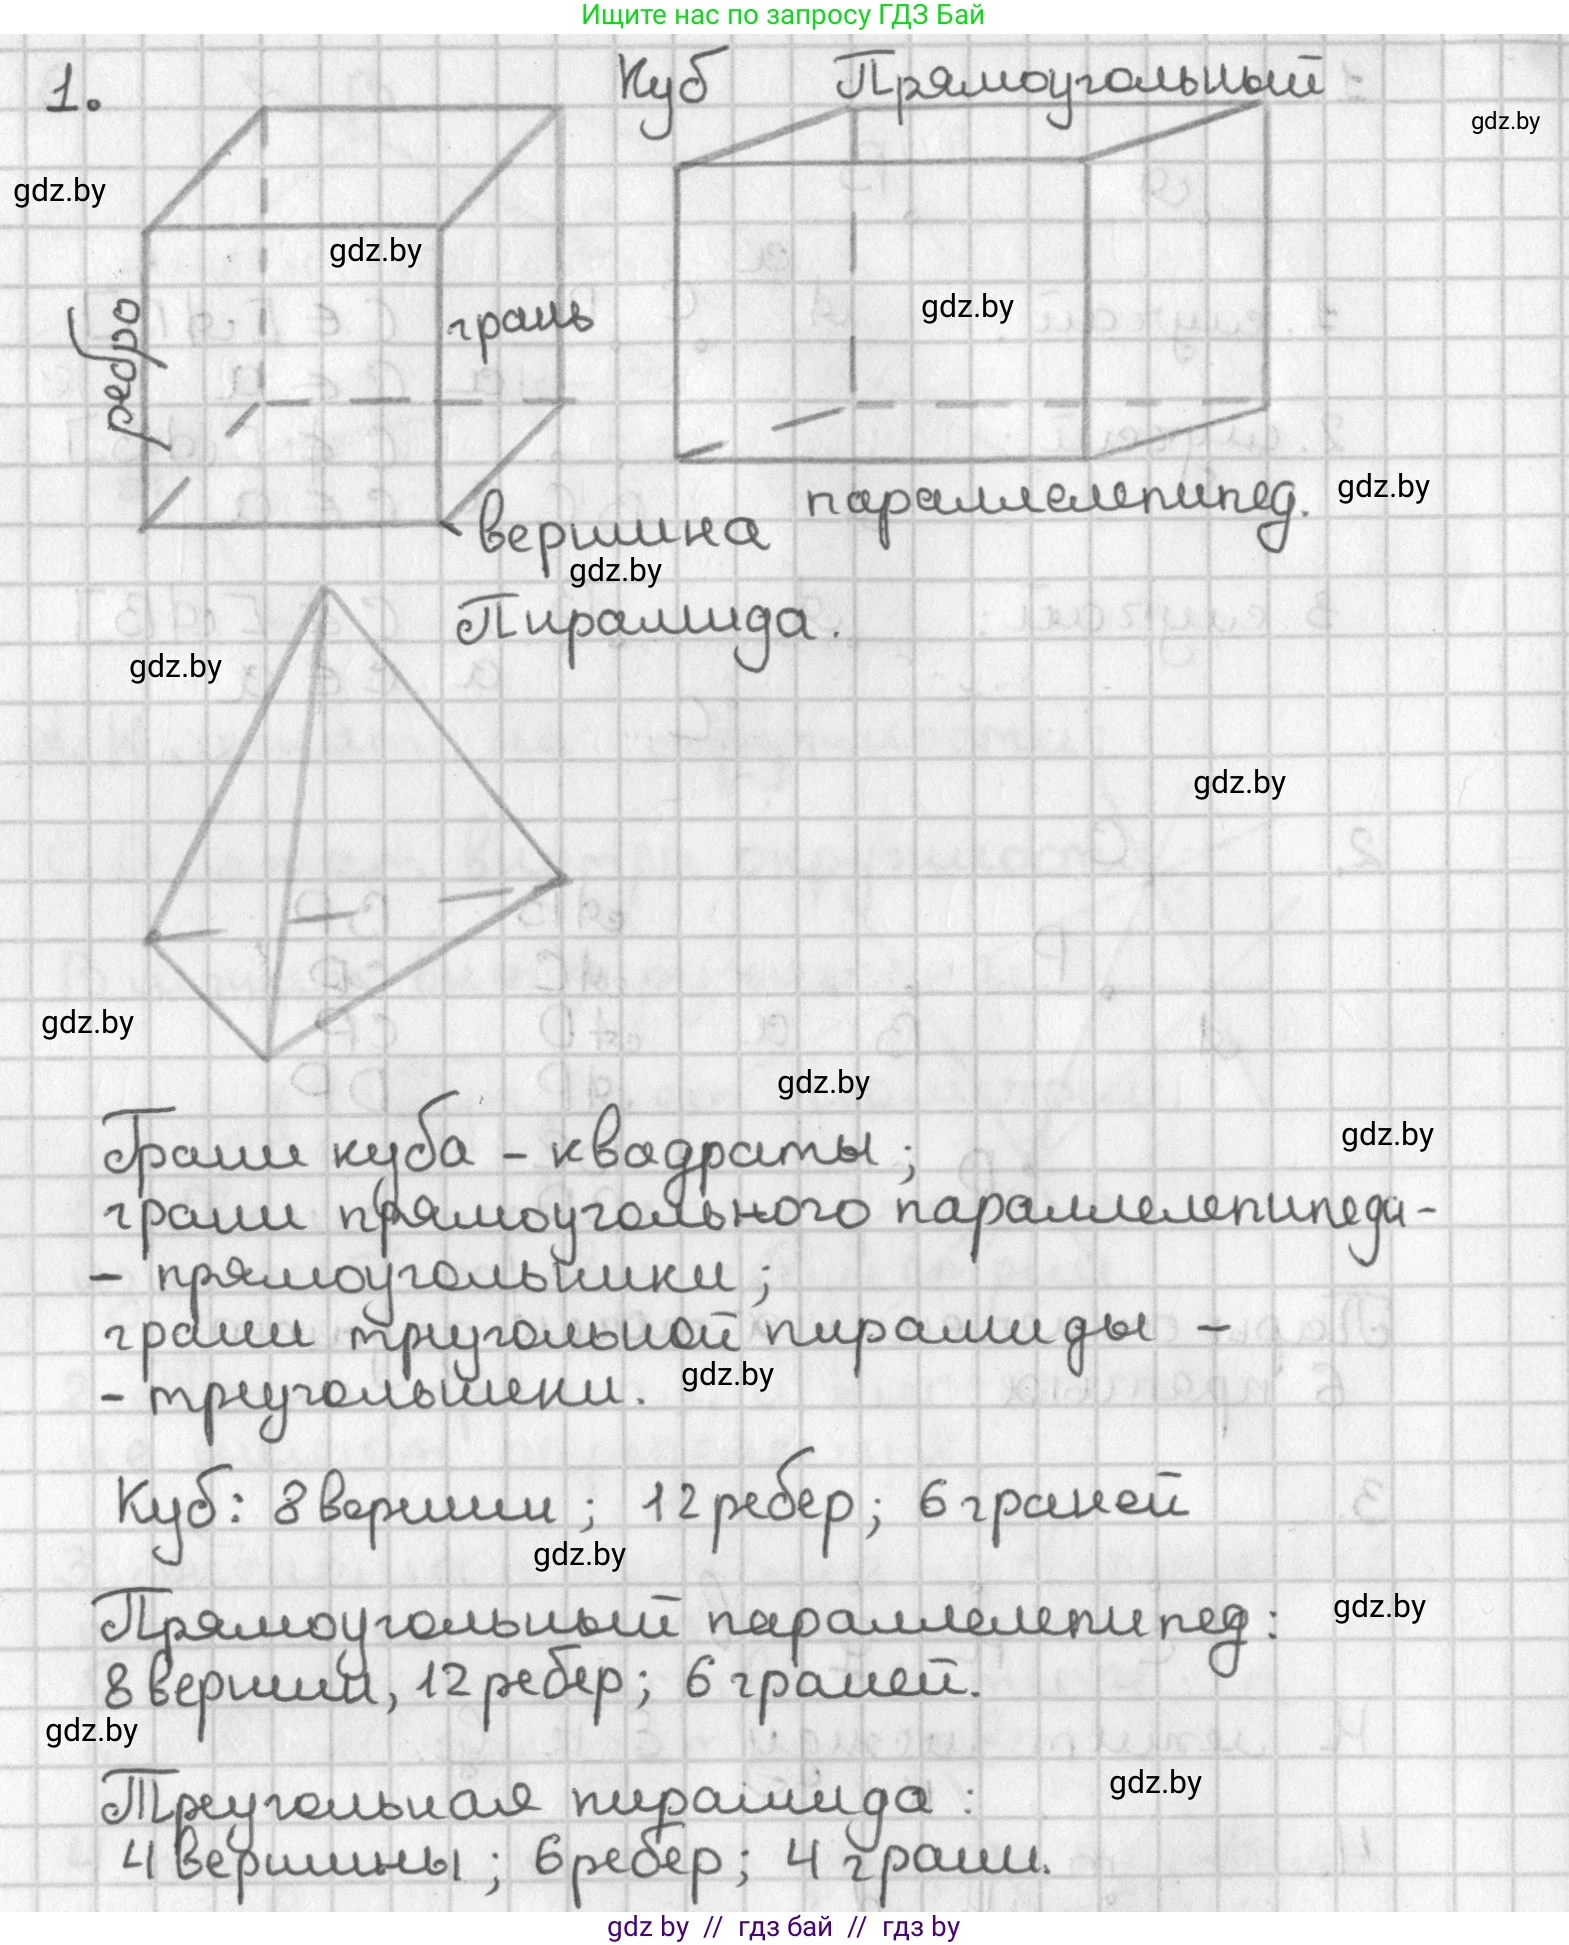 Ищите нас по запросу ГДЗ Бай
1.
Куб
Прямоугольный
gdz.by
gdz.by
gdz.by
ребро
грань
gdz.by
вершина
параллелепипед.
gdz.by
gdz.by
Пирамида.
gdz.by
gdz.by
gdz.by
gdz.by
Грани куба - квадраты;
gdz.by
грани прямоугольного параллелепипеда -
- прямоугольники;
грани треугольной пирамиды -
- треугольники.
gdz.by
Куб: 8 вершин; 12 ребер; 6 граней
gdz.by
Прямоугольный параллелепипед:
gdz.by
8 вершин, 12 ребер; 6 граней.
gdz.by
Треугольная пирамида:
gdz.by
4 вершины; 6 ребер; 4 грани.
gdz by // гдз бай // гдз by